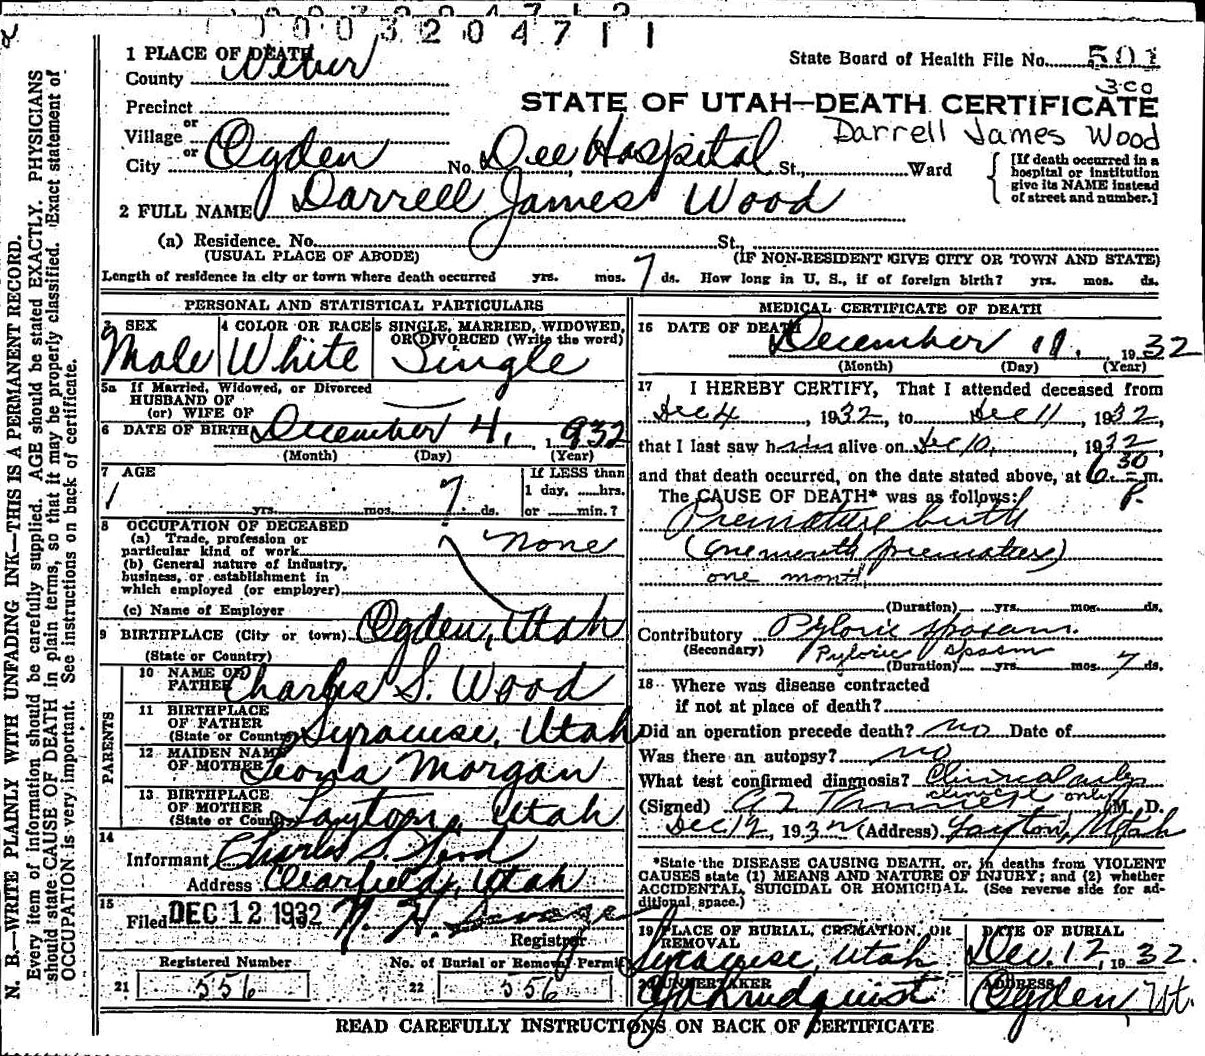 0003204711
1 PLACE OF DEATH
County Weber
State Board of Health File No. 501
300
Precinct
STATE OF UTAH—DEATH CERTIFICATE
or
Village
Darrell James Wood
or
City Ogden No. Dee Hospital St., Ward
[If death occurred in a hospital or institution give its NAME instead of street and number.]
2 FULL NAME Darrell James Wood
(a) Residence. No. St.,
(USUAL PLACE OF ABODE) (IF NON-RESIDENT GIVE CITY OR TOWN AND STATE)
Length of residence in city or town where death occurred yrs. mos. 7 ds. How long in U. S., if of foreign birth? yrs. mos. ds.
PERSONAL AND STATISTICAL PARTICULARS
3 SEX Male
4 COLOR OR RACE White
5 SINGLE, MARRIED, WIDOWED, OR DIVORCED (Write the word) Single
5a If Married, Widowed, or Divorced
HUSBAND OF
(or) WIFE OF
6 DATE OF BIRTH December 4, 1932
(Month) (Day) (Year)
7 AGE
If LESS than
1 day, hrs.
yrs. mos. 7 ds. or min.?
8 OCCUPATION OF DECEASED
(a) Trade, profession or
particular kind of work none
(b) General nature of industry,
business, or establishment in
which employed (or employer)
(c) Name of Employer
9 BIRTHPLACE (City or town) Ogden, Utah
(State or Country)
PARENTS
10 NAME OF FATHER Charles S. Wood
11 BIRTHPLACE OF FATHER (State or Country) Syracuse, Utah
12 MAIDEN NAME OF MOTHER Leona Morgan
13 BIRTHPLACE OF MOTHER (State or Country) Layton, Utah
14
Informant Charles S.
Address Clearfield, Utah
15
Filed DEC 12 1932 N. H. Savage
Registrar
Registered Number No. of Burial or Removal Permit
21 556 22 556
MEDICAL CERTIFICATE OF DEATH
16 DATE OF DEATH
December 11, 1932
(Month) (Day) (Year)
17 I HEREBY CERTIFY, That I attended deceased from
Dec 4, 1932, to Dec 11, 1932,
that I last saw him alive on Dec 10, 1932,
and that death occurred, on the date stated above, at 6 30 P. m.
The CAUSE OF DEATH* was as follows:
Premature birth
(one month premature)
one month
(Duration) yrs. mos. ds.
Contributory Pyloric spasm.
(Secondary) Pyloric spasm
(Duration) yrs. mos. 7 ds.
18 Where was disease contracted
if not at place of death?
Did an operation precede death? no Date of
Was there an autopsy? no
What test confirmed diagnosis? Clinical only
clinical only
(Signed) M. D.
Dec 12, 1932 (Address) Layton, Utah
*State the DISEASE CAUSING DEATH, or, in deaths from VIOLENT
CAUSES state (1) MEANS AND NATURE OF INJURY; and (2) whether
ACCIDENTAL, SUICIDAL OR HOMICIDAL. (See reverse side for ad-
ditional space.)
19 PLACE OF BURIAL, CREMATION, OR REMOVAL Syracuse, Utah
DATE OF BURIAL Dec. 12, 1932.
20 UNDERTAKER
ADDRESS Ogden, Ut.
READ CAREFULLY INSTRUCTIONS ON BACK OF CERTIFICATE
N. B.—WRITE PLAINLY WITH UNFADING INK—THIS IS A PERMANENT RECORD.
Every item of information should be carefully supplied. AGE should be stated EXACTLY. PHYSICIANS
should state CAUSE OF DEATH in plain terms, so that it may be properly classified. Exact statement of
OCCUPATION is very important. See instructions on back of certificate.